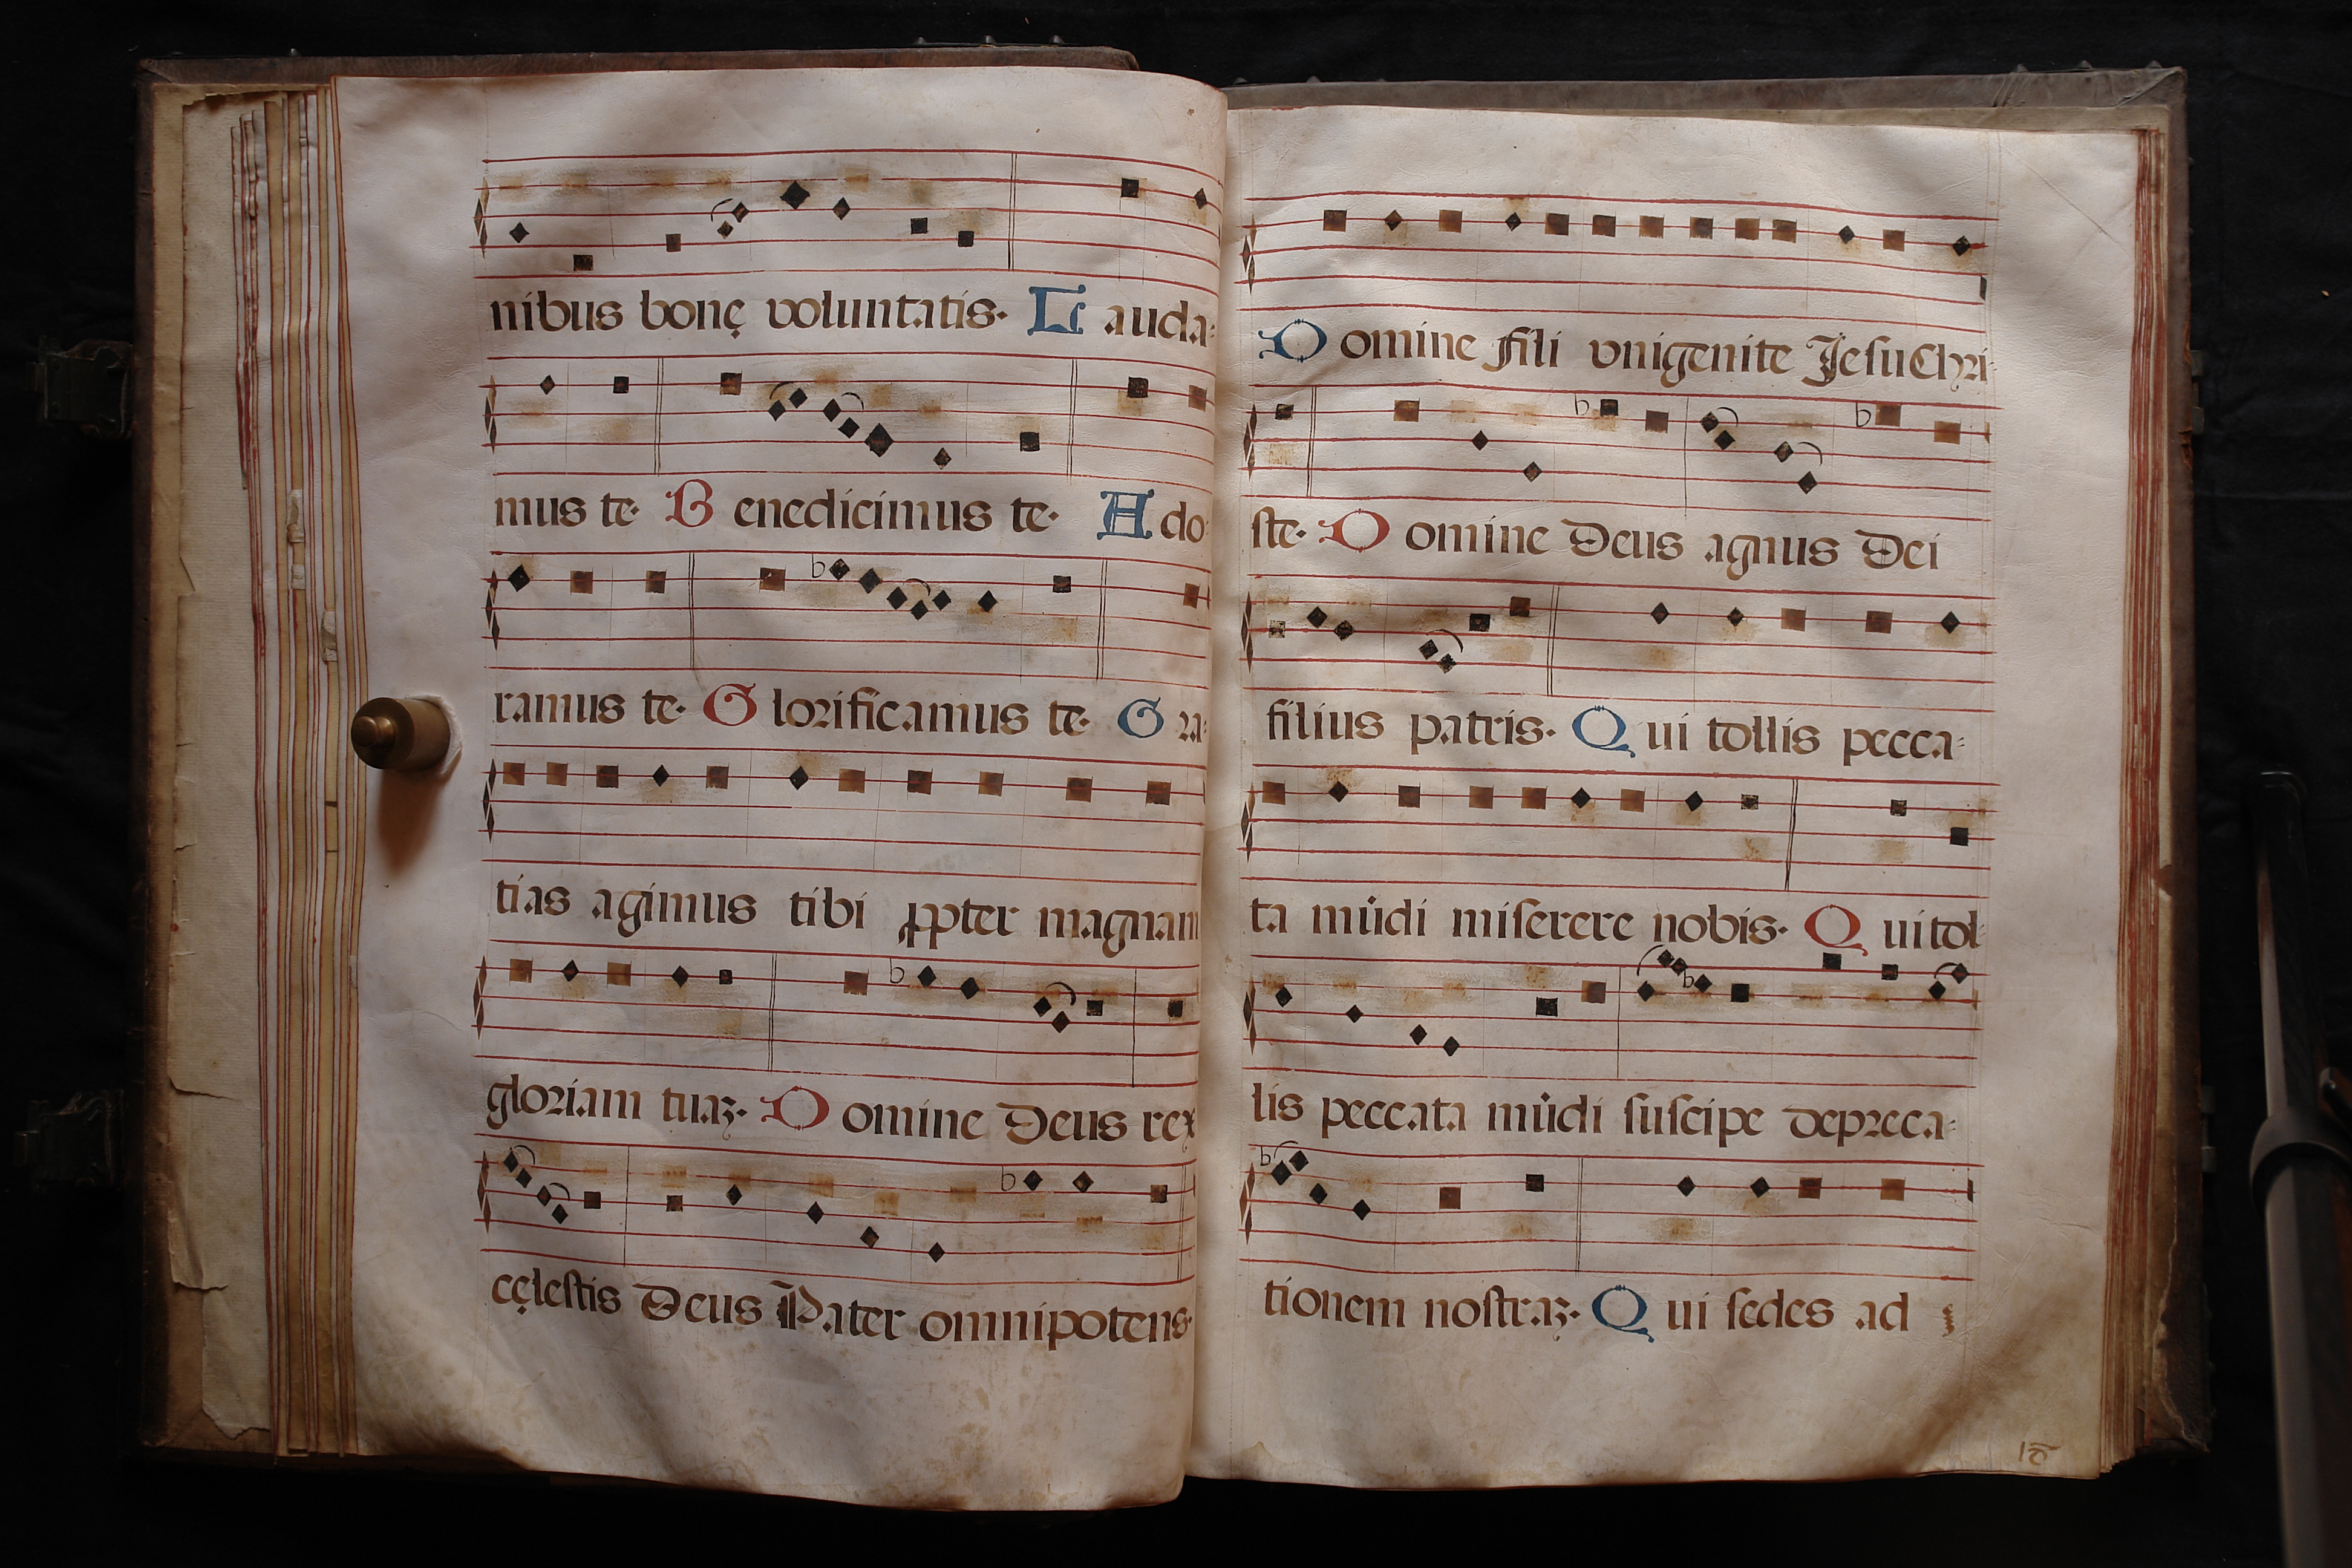 nibus bonę voluntatis. Lauda-
mus te. Benedicimus te. Ado-
ramus te. Glorificamus te. Gra-
tias agimus tibi ꝓpter magnam
gloriam tuaꝫ. Domine Deus rex
cęlestis Deus Pater omnipotens.
Domine fili vnigenite JesuChri-
ste. Domine Deus agnus Dei
filius patris. Qui tollis pecca-
ta mūdi miserere nobis. Qui tol-
lis peccata mūdi suscipe depreca-
tionem nostraꝫ. Qui sedes ad